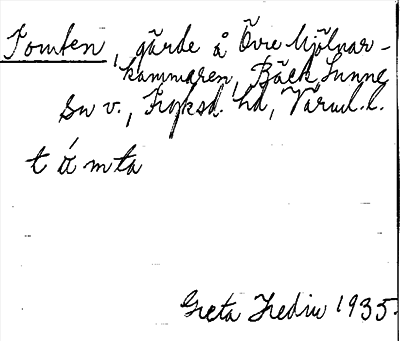 Tomten, gärde å Övre Mjölnar-
kammaren, Bäck Sunne
sn v., Fryksd. hd, Värml. l.
tómta
Greta Hedin 1935.